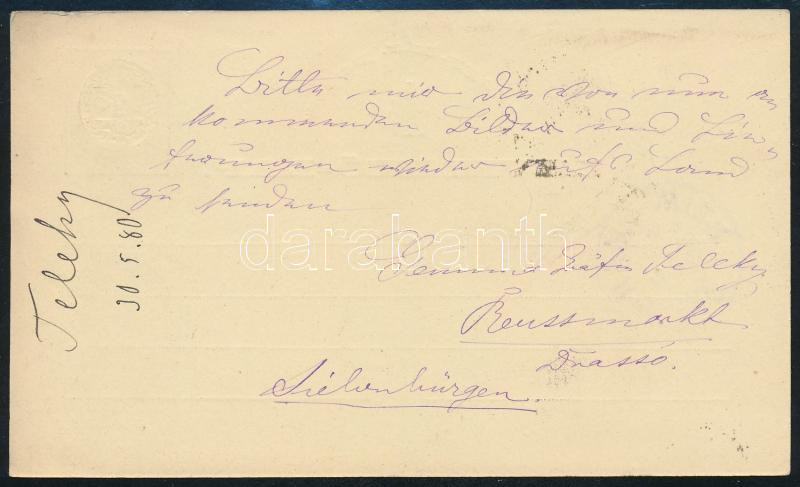 Bitte mir die von nun an
kommenden Bilder und Lie-
ferungen wieder aufs Land
zu senden
Gemma Gräfin Teleky
Reussmarkt
Drassó.
Siebenbürgen.
Teleky
30.5.80
darabanth